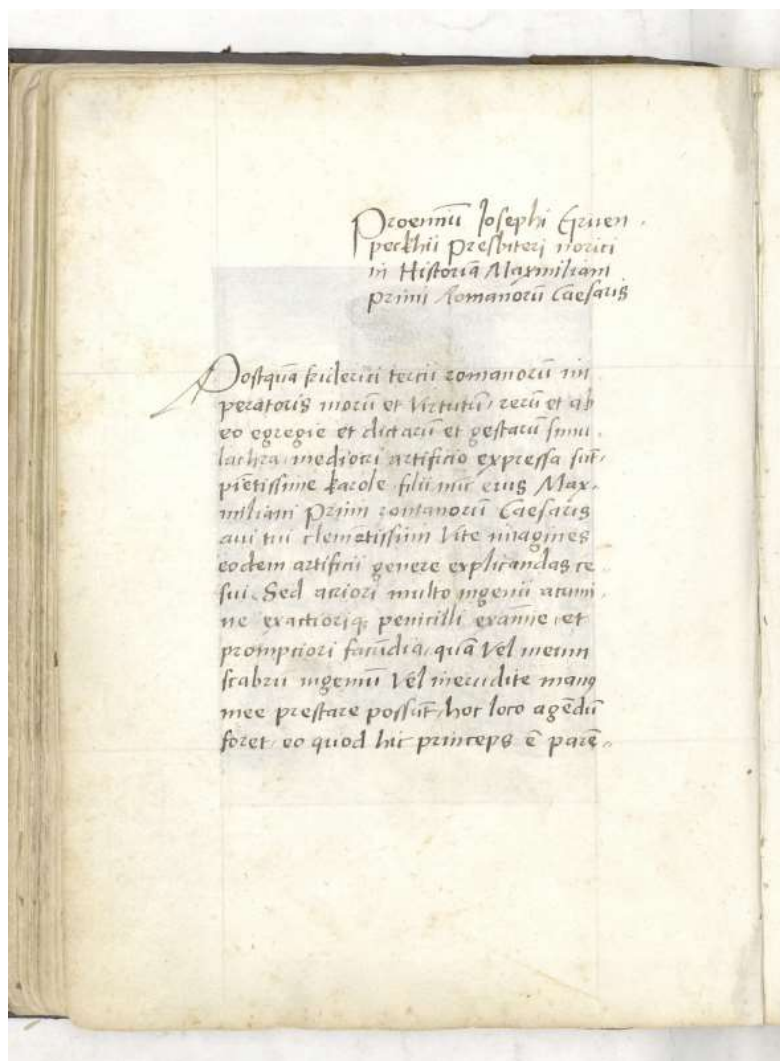 Proemiū Josephi Grven
peckhii presbiteri norici
in Historiā Maxmiliani
primi Romanorū Caesaris
Postquā friderici tercii romanorū im
peratoris morū et Virtutū, rerū et ab
eo egregie et dictarū et gestarū simu
lachra mediocri artificio expressa sūt,
piētissime karole filii nūc eius Max
miliani Primi romanorū Caesaris
aui tui clemētissim Vite imagines
eodem artificii genere explicandas ce
sui. Sed acriori multo ingenii acumi
ne exactioriq; penicilli exāmie, et
prompciori facūdia, quā Vel meum
scabrū ingeniū Vel inerudite manꝰ
mee prestare possūt, hoc loco agēdū
foret, eo quod hic princeps ē parē